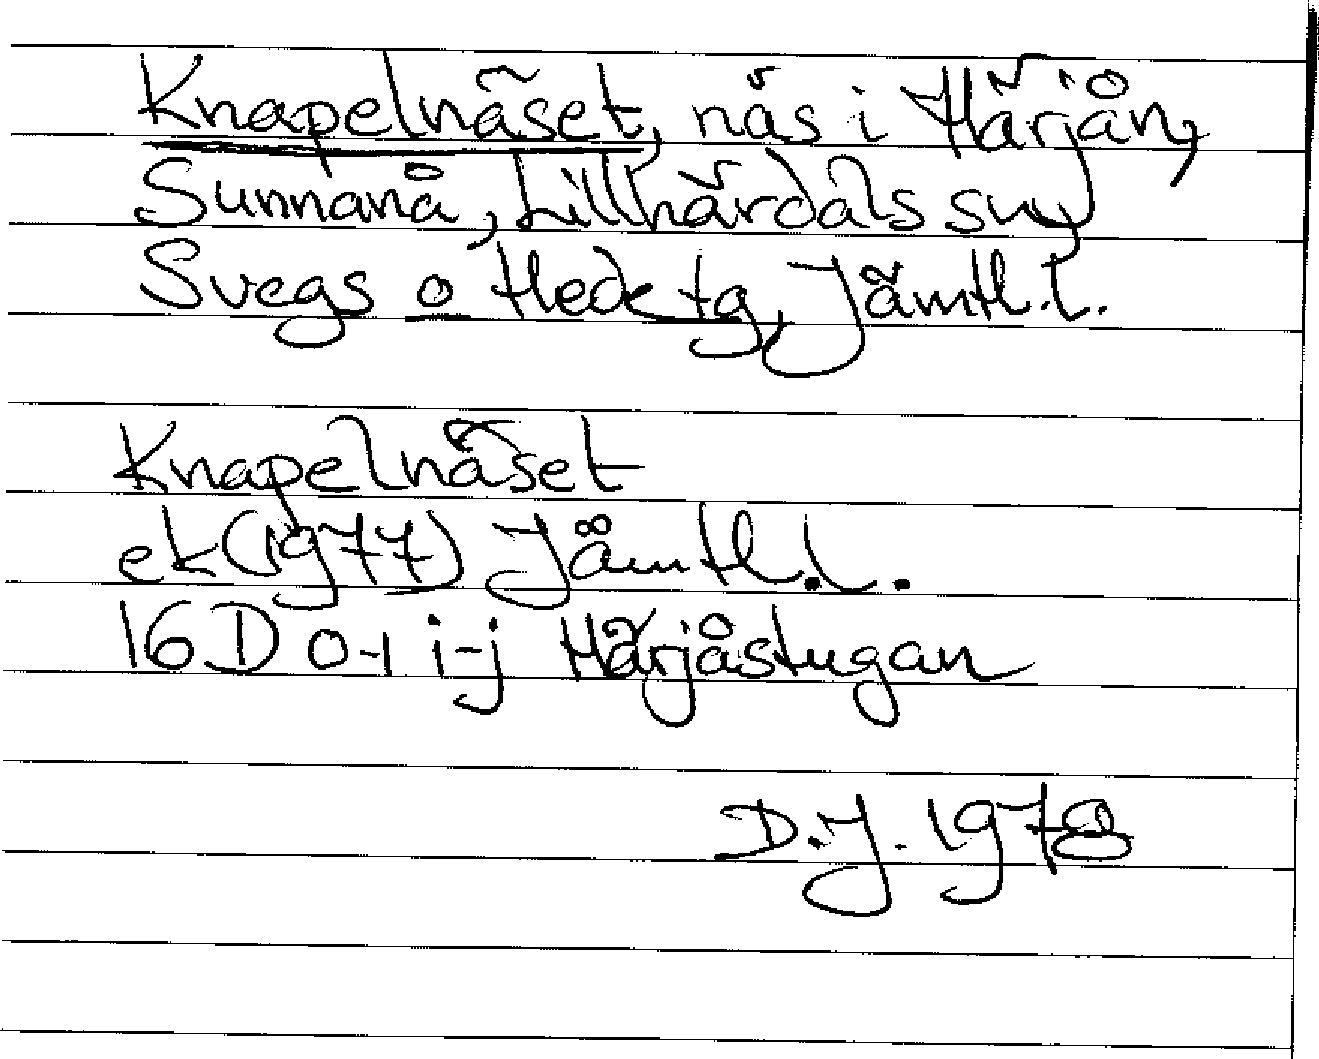 Knapelnäset, näs i Härjån,
Sunnanå, Lillhärdals sn,
Svegs o Hede tg, Jämtl.l.
Knapelnäset
ek (1977) Jämtl.l.
16 D 0-1 i-j Härjåstugan
D.J. 1978